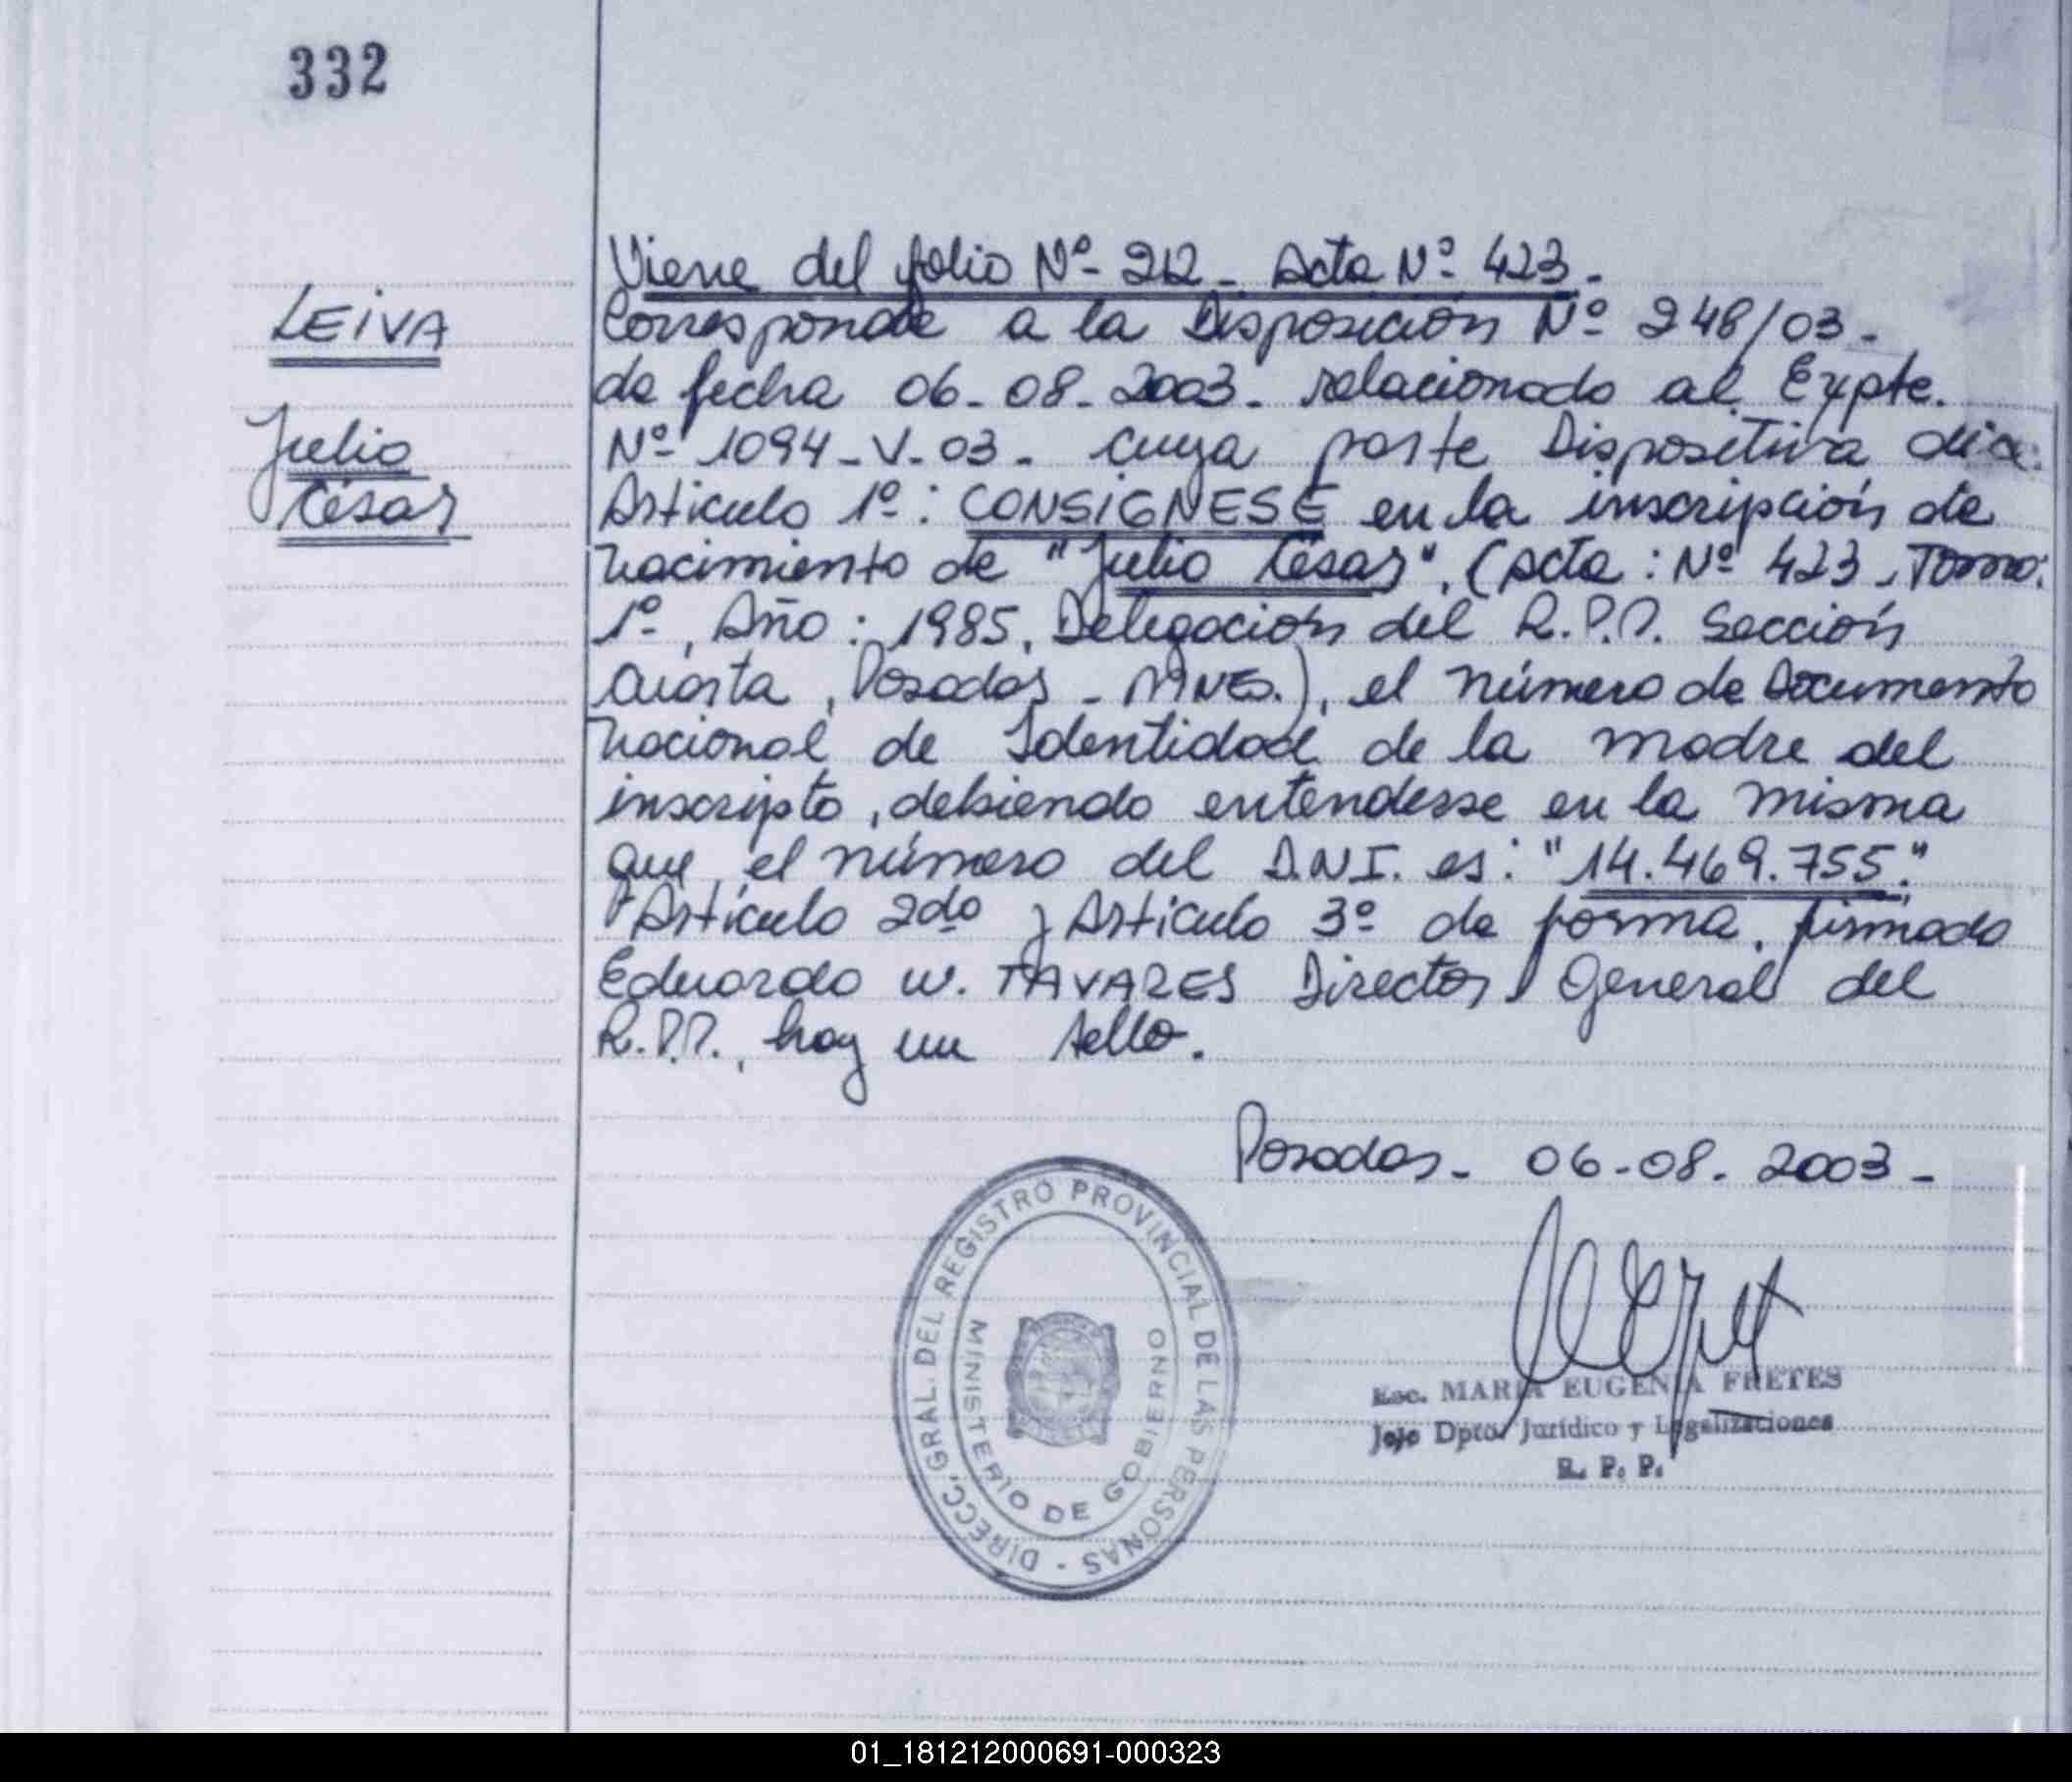 332
LEIVA
Julio
César
Viene del folio Nº 212 - Acta Nº 423.
Corresponde a la Disposición Nº 248/03.
de fecha 06-08-2003. relacionado al Expte.
Nº 1094-V-03. cuya parte Dispositiva dice
Artículo 1º: CONSIGNESE en la inscripción de
nacimiento de "Julio César", (Acta: Nº 423, Tomo:
1º, Año: 1985, Delegación del R.P.P. Sección
Cuarta, Posadas - MNES.), el número de Documento
Nacional de Identidad de la madre del
inscripto, debiendo entenderse en la misma
que el número del D.N.I. es: "14.469.755."
Artículo 2do y Artículo 3º de forma, firmado
Eduardo W. TAVARES Director General del
R.P.P., hay un sello.
Posadas - 06-08-2003 -
DIRECC. GRAL. DEL REGISTRO PROVINCIAL DE LAS PERSONAS -
MINISTERIO DE GOBIERNO
Esc. MARIA EUGENIA FRETES
Jefe Dpto. Jurídico y Legalizaciones
R. P. P.
01_181212000691-000323